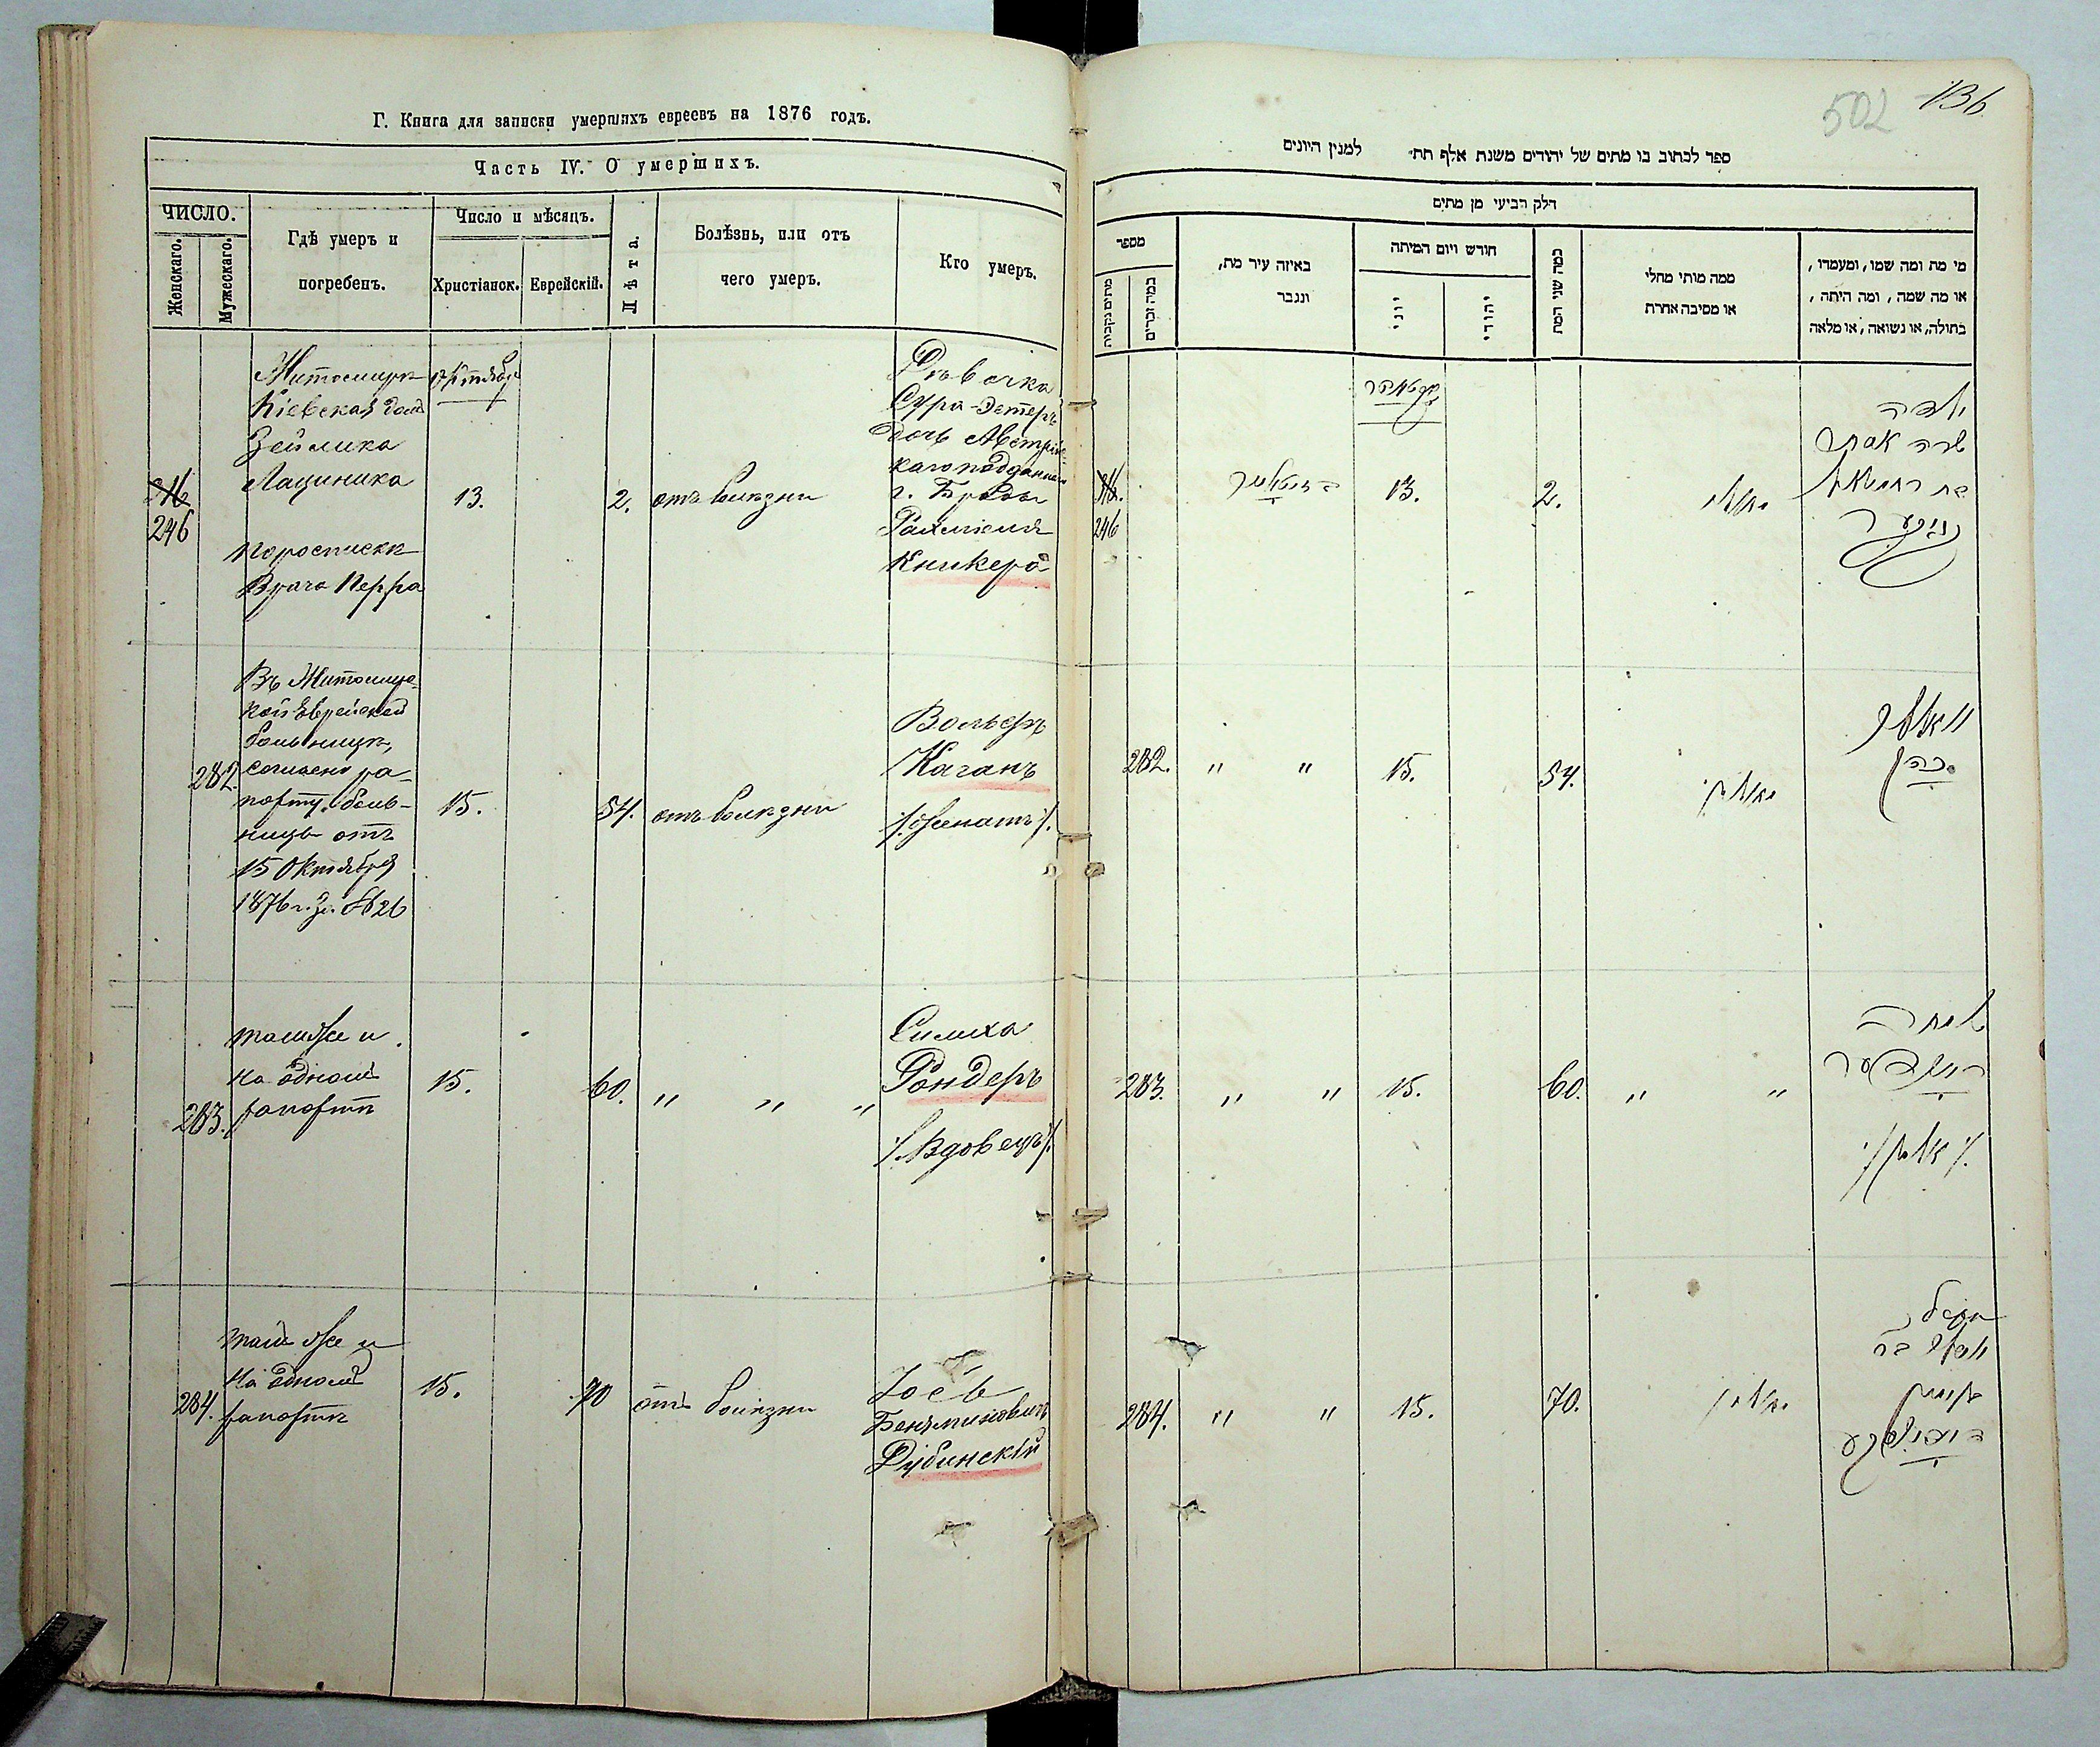 Г. Книга для записки умершихъ евреевъ на 1876 годъ.
Часть IV. О умершихъ.
ЧИСЛО.
Женскаго.
Мужескаго.
Гдѣ умеръ и
погребенъ.
Число и мѣсяцъ.
Христіанск.
Еврейскій.
Лѣта.
Болѣзнь, или отъ
чего умеръ.
Кто умеръ.
246
Житомиръ
Кіевская
Зейлика
Лациника
по роспискѣ
Врача Перра
Октября
13.
2.
отъ болѣзни
Дѣвочка
Сура-Эстеръ
дочь Австрійс-
каго подданнаго
г. Броды
Рахміеля
Кникера
282.
Въ Житомирс-
кой Еврейской
больницѣ,
согласно ра-
порту боль-
ницы отъ
15 Октября
1876 г. за №26
15.
54.
отъ болѣзни
Вольфъ
Каганъ
/.женатъ/.
283.
тамъ же и
на одномъ
рапортѣ
15.
60.
" " "
Симха
Рондеръ
/.Вдовецъ/.
284.
тамъ же и
на одномъ
рапортѣ
15.
70
отъ болѣзни
Іосъ
Беняминовичъ
Дубинскій
502
136
ספר לכתוב בו מתים של יהודים משנת אלף תת למנין היונים
חלק רביעי מן מתים
מספר
מתים נקבות
כמה זכרים
באיזה עיר מת,
ונגבר
חודש ויום המיתה
יוני
יהודי
כמה שני המת
ממה מותי מחלי
או מסיבה אחרת
מי מת ומה שמו, ומעמדו,
או מה שמה, ומה היתה,
בתולה, או נשואה, או מלאה
246
זיטאמיר
אקטאבר
13.
2.
ילדה
שרה אסתר
בת רחמיאל
קניקער
282.
" "
15.
54.
וואלף
כהן
283.
" "
15.
60.
" "
שמחה
ראנדער
/. אלמן /.
284.
" "
15.
70.
דובינסקע